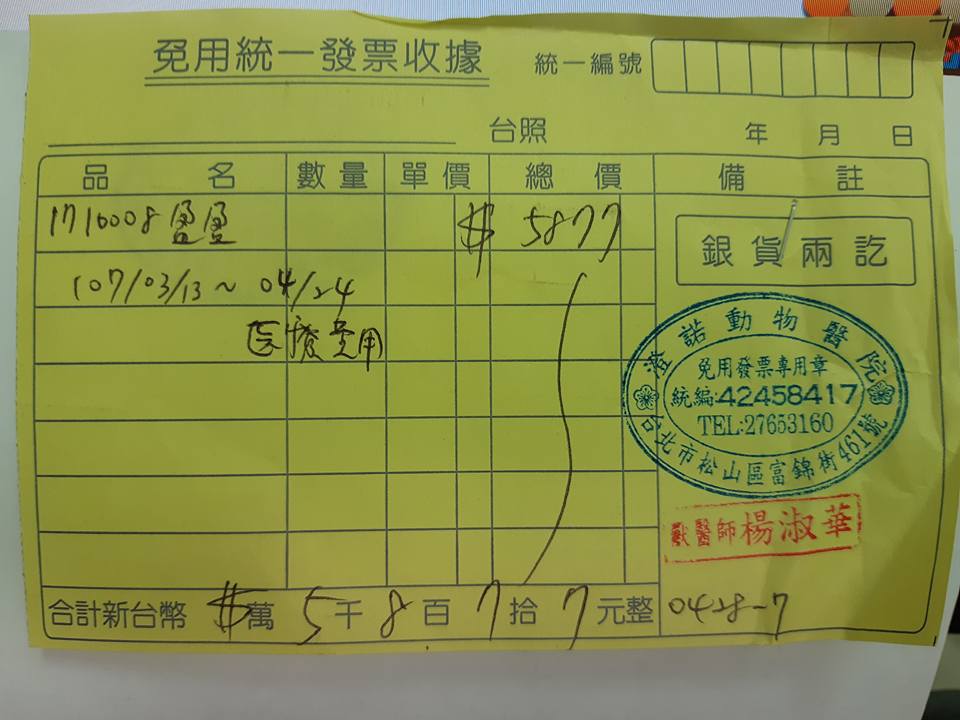 免用統一發票收據
統一編號
台照 年 月 日
品名 數量 單價 總價 備註
1710008 $ 5877
銀貨兩訖
107/03/13~04/24
医療費用
澄諾動物醫院
免用發票專用章
統編:42458417
TEL:27653160
台北市松山區富錦街461號
獸醫師楊淑華
合計新台幣 $萬5千8百7拾7元整
0428-7